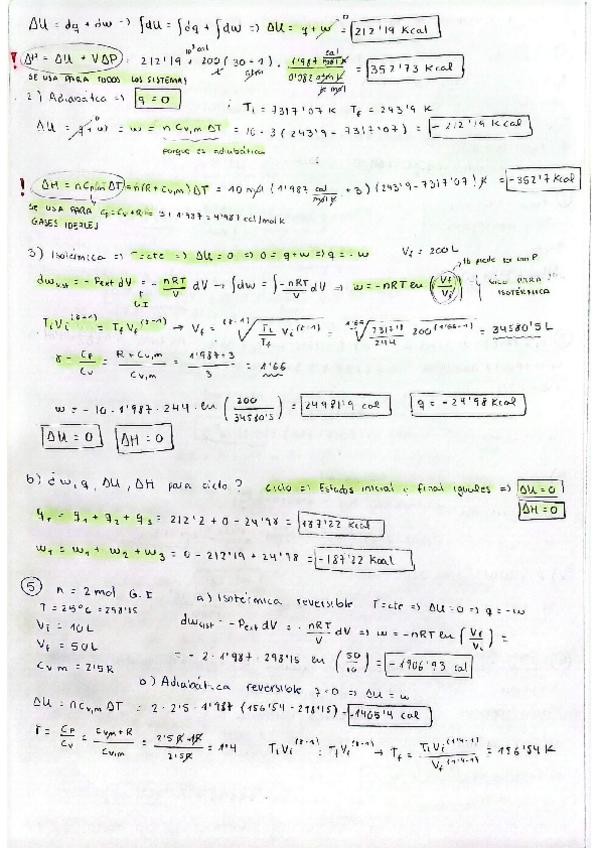 ΔU = dq + dw → ∫dU = ∫dq + ∫dw ⇒ ΔU = q + w⁰ = 212'19 Kcal
! ΔH = ΔU + VΔP : 212'19 + 200 (30 - 1) · 1'987 cal/mol K / 0'082 atm l/K mol = 352'73 Kcal
SE USA PARA TODOS LOS SISTEMAS
2) Adiabática ⇒ q = 0 : Ti = 7317'07 K Tf = 243'9 K
ΔU = q⁰ + w ⇒ w = n Cv,m ΔT = 10 · 3 (243'9 - 7317'07) = -212'19 Kcal
porque es adiabática
! ΔH = nCp,mΔT = n(R + Cv,m)ΔT = 10 mol (1'987 cal/mol K + 3) (243'9 - 7317'07) K = -352'7 Kcal
SE USA PARA GASES IDEALES
3) Isotérmica ⇒ T = cte ⇒ ΔU = 0 ⇒ 0 = q + w ⇒ q = -w Vf = 200 L
dw = -Pext dV = - nRT/V dV → ∫dw = ∫ - nRT/V dV ⇒ w = -nRT ln (Vf/Vi)
G.I
SOLO PARA ISOTÉRMICA
TiVi^(γ-1) = TfVf^(γ-1) → Vf = ^(γ-1)√(Ti/Tf Vi^(γ-1)) = √(7317'1/244 200^(1'66-1)) = 34580'5 L
γ = Cp/Cv = R + Cv,m / Cv,m = 1'987 + 3 / 3 = 1'66
w = -10 · 1'987 · 244 · ln (200/34580'5) = 24981'9 cal q = -24'98 Kcal
ΔU = 0 ΔH = 0
b) ¿w, q, ΔU, ΔH para ciclo? Ciclo ⇒ Estados inicial y final iguales ⇒ ΔU = 0
ΔH = 0
qT = q1 + q2 + q3 = 212'2 + 0 - 24'98 = 187'22 Kcal
wT = w1 + w2 + w3 = 0 - 212'19 + 24'98 = -187'22 Kcal
5 n = 2 mol G.I a) Isotérmica reversible T = cte ⇒ ΔU = 0 ⇒ q = -w
T = 25ºC = 298'15
Vi = 10 L
Vf = 50 L
Cv m = 2'5 R
dw = -Pext dV = - nRT/V dV ⇒ w = -nRT ln (Vf/Vi) =
= -2 · 1'987 · 298'15 ln (50/10) = -1906'93 cal
b) Adiabática reversible q = 0 ⇒ ΔU = w
ΔU = nCv,m ΔT = 2 · 2'5 · 1'987 (156'54 - 298'15) = -1405'4 cal
γ = Cp/Cv = Cv,m + R / Cv,m = 1'4 TiVi^(γ-1) = TfVf^(γ-1) → Tf = TiVi^(1'4-1) / Vf^(1'4-1) = 156'54 K